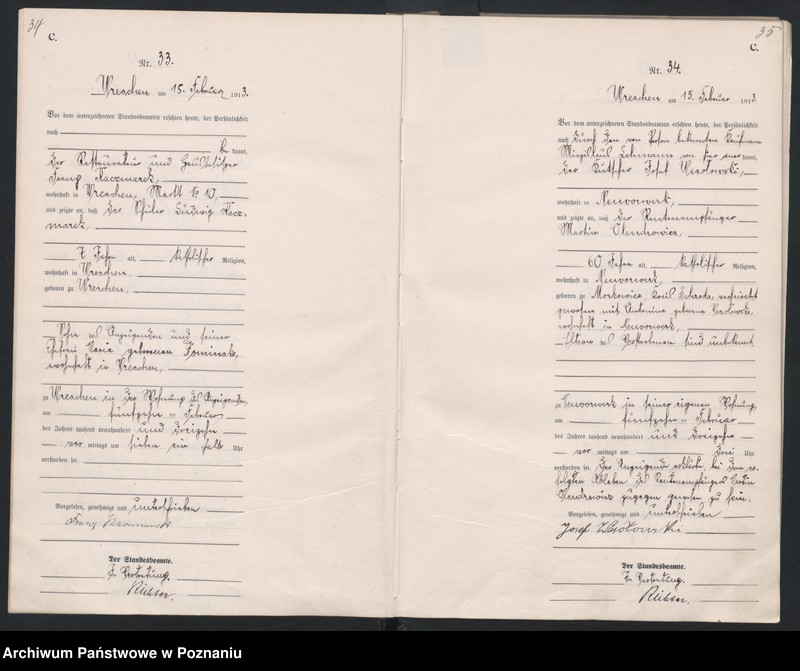 34
C.
Nr. 33.
Wreschen am 15. Februar 1913.
Vor dem unterzeichneten Standesbeamten erschien heute, der Persönlichkeit
nach
kannt,
der Restaurateur und Hausbesitzer
Franz Kaczmarek,
wohnhaft in Wreschen, Markt № 10,
und zeigte an, daß der Schüler Ludwig Kacz-
marek,
7 Jahre alt, katholischer Religion,
wohnhaft in Wreschen,
geboren zu Wreschen,
Sohn des Anzeigenden und seiner
Ehefrau Maria geborenen
wohnhaft in Wreschen,
zu Wreschen in der Wohnung des Anzeigenden,
am fünfzehnten Februar
des Jahres tausend neunhundert und dreizehn
vormittags um sieben ein halb Uhr
verstorben sei.
Vorgelesen, genehmigt und unterschrieben
Franz Kaczmarek
Der Standesbeamte.
In Vertretung.
35
C.
Nr. 34.
Wreschen am 15. Februar 1913.
Vor dem unterzeichneten Standesbeamten erschien heute, der Persönlichkeit
nach durch den von Person bekannten Kaufmann
Lehmann von hier anerkannt,
der Kutscher Josef
wohnhaft in Neuvorwerk,
und zeigte an, daß der Rentenempfänger
Martin Olendrowicz,
60 Jahre alt, katholischer Religion,
wohnhaft in Neuvorwerk,
geboren zu Kreis Schroda, verheiratet
gewesen mit Antonina geborene
wohnhaft in Neuvorwerk,
Eltern des Verstorbenen sind unbekannt
zu Neuvorwerk in seiner eigenen Wohnung,
am fünfzehnten Februar
des Jahres tausend neunhundert und dreizehn
vormittags um drei Uhr
verstorben sei. Der Anzeigende erklärte, bei dem er-
folgten Ableben des Rentenempfängers Martin
Olendrowicz zugegen gewesen zu sein.
Vorgelesen, genehmigt und unterschrieben
Josef
Der Standesbeamte.
In Vertretung.
Archiwum Państwowe w Poznaniu